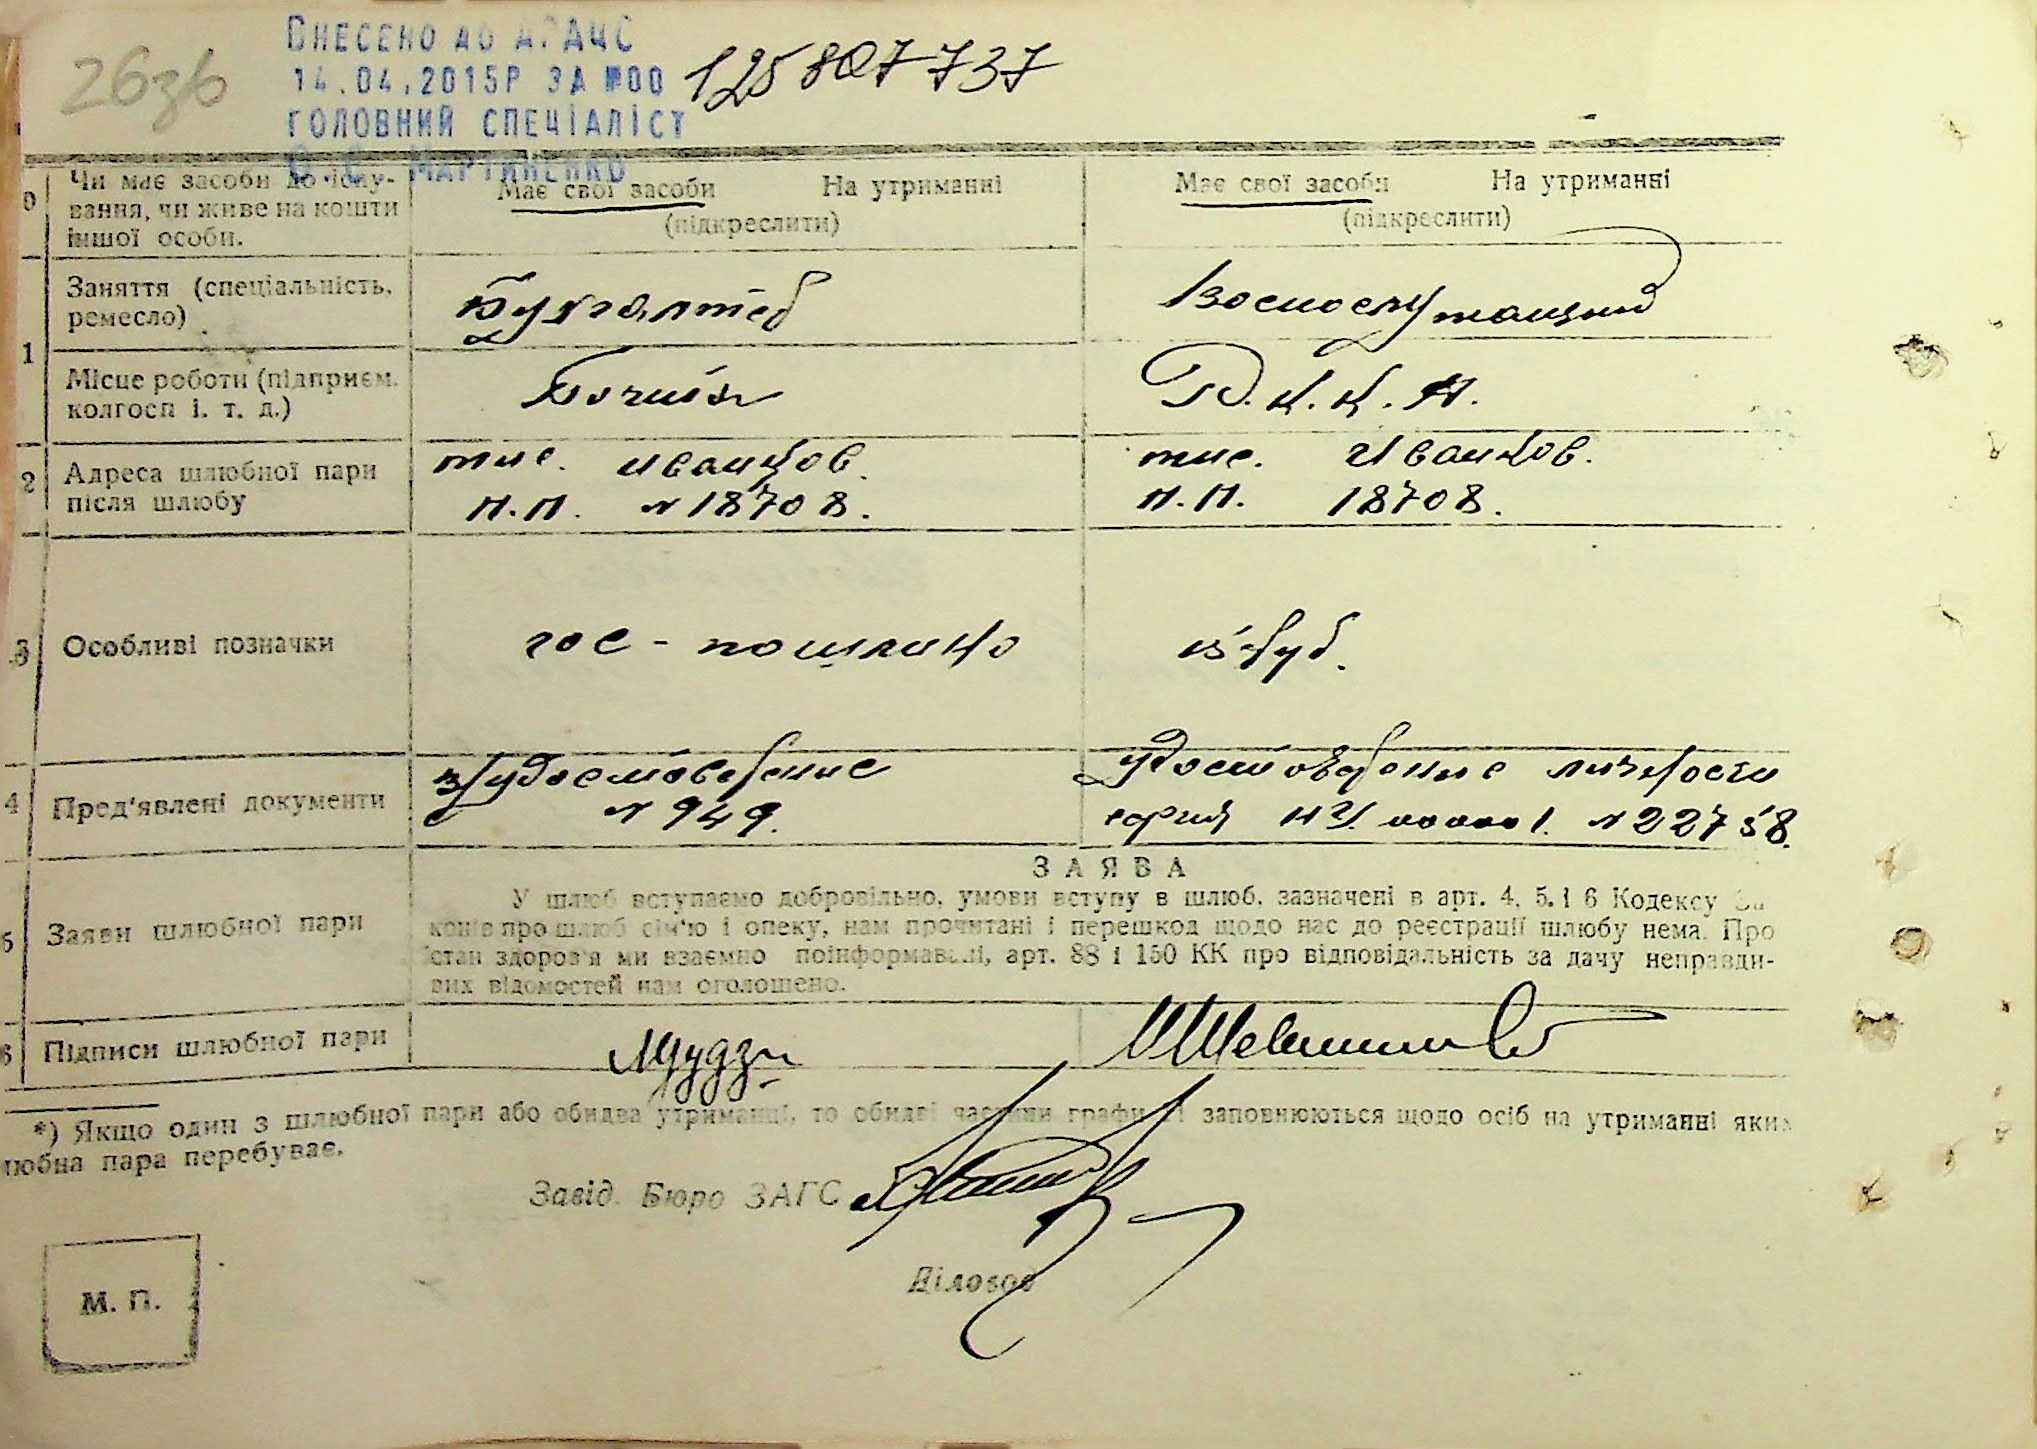 26зв
Внесено до ДРАЦС
14.04.2015р за №00 125807737
головний спеціаліст
Мартиненко
0 Чи має засоби до існу-
вання, чи живе на кошти
іншої особи.
Має свої засоби На утриманні
(підкреслити)
Має свої засоби На утриманні
(підкреслити)
1 Заняття (спеціальність,
ремесло)
Бухгалтер
Военослужащий
Місце роботи (підприєм.
колгосп і. т. д.)
Р. К. К. А.
2 Адреса шлюбної пари
після шлюбу
мис. Иванков.
П.П. № 18708.
мис. Иванков.
П.П. 18708.
3 Особливі позначки
гос-пошлина
15 руб.
4 Пред'явлені документи
удостоверение
№ 949.
удостоверение личности
серия НУ 1. № 22758.
5 Заяви шлюбної пари
ЗАЯВА
У шлюб вступаємо добровільно, умови вступу в шлюб, зазначені в арт. 4, 5. і 6 Кодексу За
конів про шлюб сім'ю і опеку, нам прочитані і перешкод щодо нас до реєстрації шлюбу нема. Про
стан здоров'я ми взаємно поінформовані, арт. 88 і 150 КК про відповідальність за дачу неправди-
вих відомостей нам оголошено.
6 Підписи шлюбної пари
*) Якщо один з шлюбної пари або обидва утриманці, то обидві частини графи заповнюються щодо осіб на утриманні яких
любна пара перебуває.
Завід. Бюро ЗАГС
Діловод
М. П.